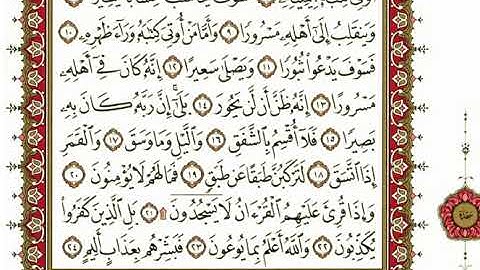 وَيَنقَلِبُ إِلَىٰٓ أَهْلِهِۦ مَسْرُورًا ٩ وَأَمَّا مَنْ أُوتِىَ كِتَٰبَهُۥ وَرَآءَ ظَهْرِهِۦ ١٠
فَسَوْفَ يَدْعُوا۟ ثُبُورًا ١١ وَيَصْلَىٰ سَعِيرًا ١٢ إِنَّهُۥ كَانَ فِىٓ أَهْلِهِۦ
مَسْرُورًا ١٣ إِنَّهُۥ ظَنَّ أَن لَّن يَحُورَ ١٤ بَلَىٰٓ إِنَّ رَبَّهُۥ كَانَ بِهِۦ
بَصِيرًا ١٥ فَلَآ أُقْسِمُ بِٱلشَّفَقِ ١٦ وَٱلَّيْلِ وَمَا وَسَقَ ١٧ وَٱلْقَمَرِ
إِذَا ٱتَّسَقَ ١٨ لَتَرْكَبُنَّ طَبَقًا عَن طَبَقٍ ١٩ فَمَا لَهُمْ لَا يُؤْمِنُونَ ٢٠
وَإِذَا قُرِئَ عَلَيْهِمُ ٱلْقُرْءَانُ لَا يَسْجُدُونَ ۩ ٢١ بَلِ ٱلَّذِينَ كَفَرُوا۟
يُكَذِّبُونَ ٢٢ وَٱللَّهُ أَعْلَمُ بِمَا يُوعُونَ ٢٣ فَبَشِّرْهُم بِعَذَابٍ أَلِيمٍ ٢٤
سجدة